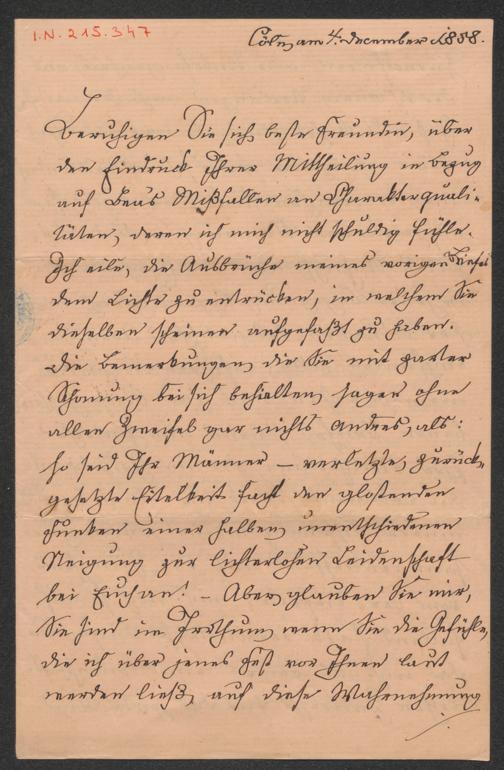 I.N. 215.347
Cöln, am 4. December 1858.
Beruhigen Sie sich, beste Freundin, über
den Eindruck Ihrer Mittheilung in bezug
auf Bea's Mißfallen an Charakterquali-
täten, deren ich mich nicht schuldig fühle.
Ich eile, die Ausbrüche meines vorigen Briefes
dem Lichte zu entrücken, in welchem Sie
dieselben scheinen aufgefaßt zu haben.
Die Bemerkungen, die Sie mit zarter
Schonung bei sich behielten, sagen ohne
allen Zweifel gar nichts Andres, als:
so seid Ihr Männer – verletzte, zurück-
gesetzte Eitelkeit facht den glostenden
Funken einer halben, unentschiedenen
Neigung zur lichterlohen Leidenschaft
bei Euch an! – Aber, glauben Sie mir,
Sie sind im Irrthum, wenn Sie die Gefühle,
die ich über jenes Fest vor Ihnen laut
werden ließ, auf diese Wahrnehmung